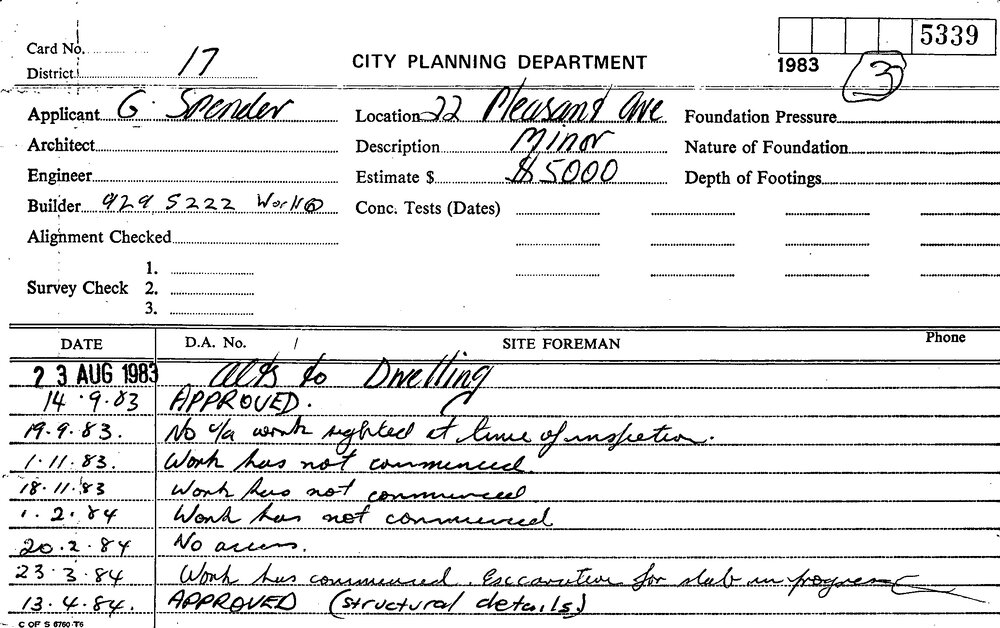 5339
Card No.
District 17
CITY PLANNING DEPARTMENT
1983 3
Applicant G. Spender Location 22 Pleasant Ave Foundation Pressure
Architect Description Minor Nature of Foundation
Engineer Estimate $ $5000 Depth of Footings
Builder 929 5222 Conc. Tests (Dates)
Alignment Checked
1.
Survey Check 2.
3.
DATE D.A. No. / SITE FOREMAN Phone
23 AUG 1983 alts to Dwelling
14.9.83 APPROVED.
19.9.83. No u/a work sighted at time of inspection.
1.11.83. Work has not commenced.
18.11.83 Work has not commenced.
1.2.84 Work has not commenced
20.2.84 No access.
23.3.84 Work has commenced. Excavation for slab in progress
13.4.84. APPROVED (structural details)
C OF S 6760-T6